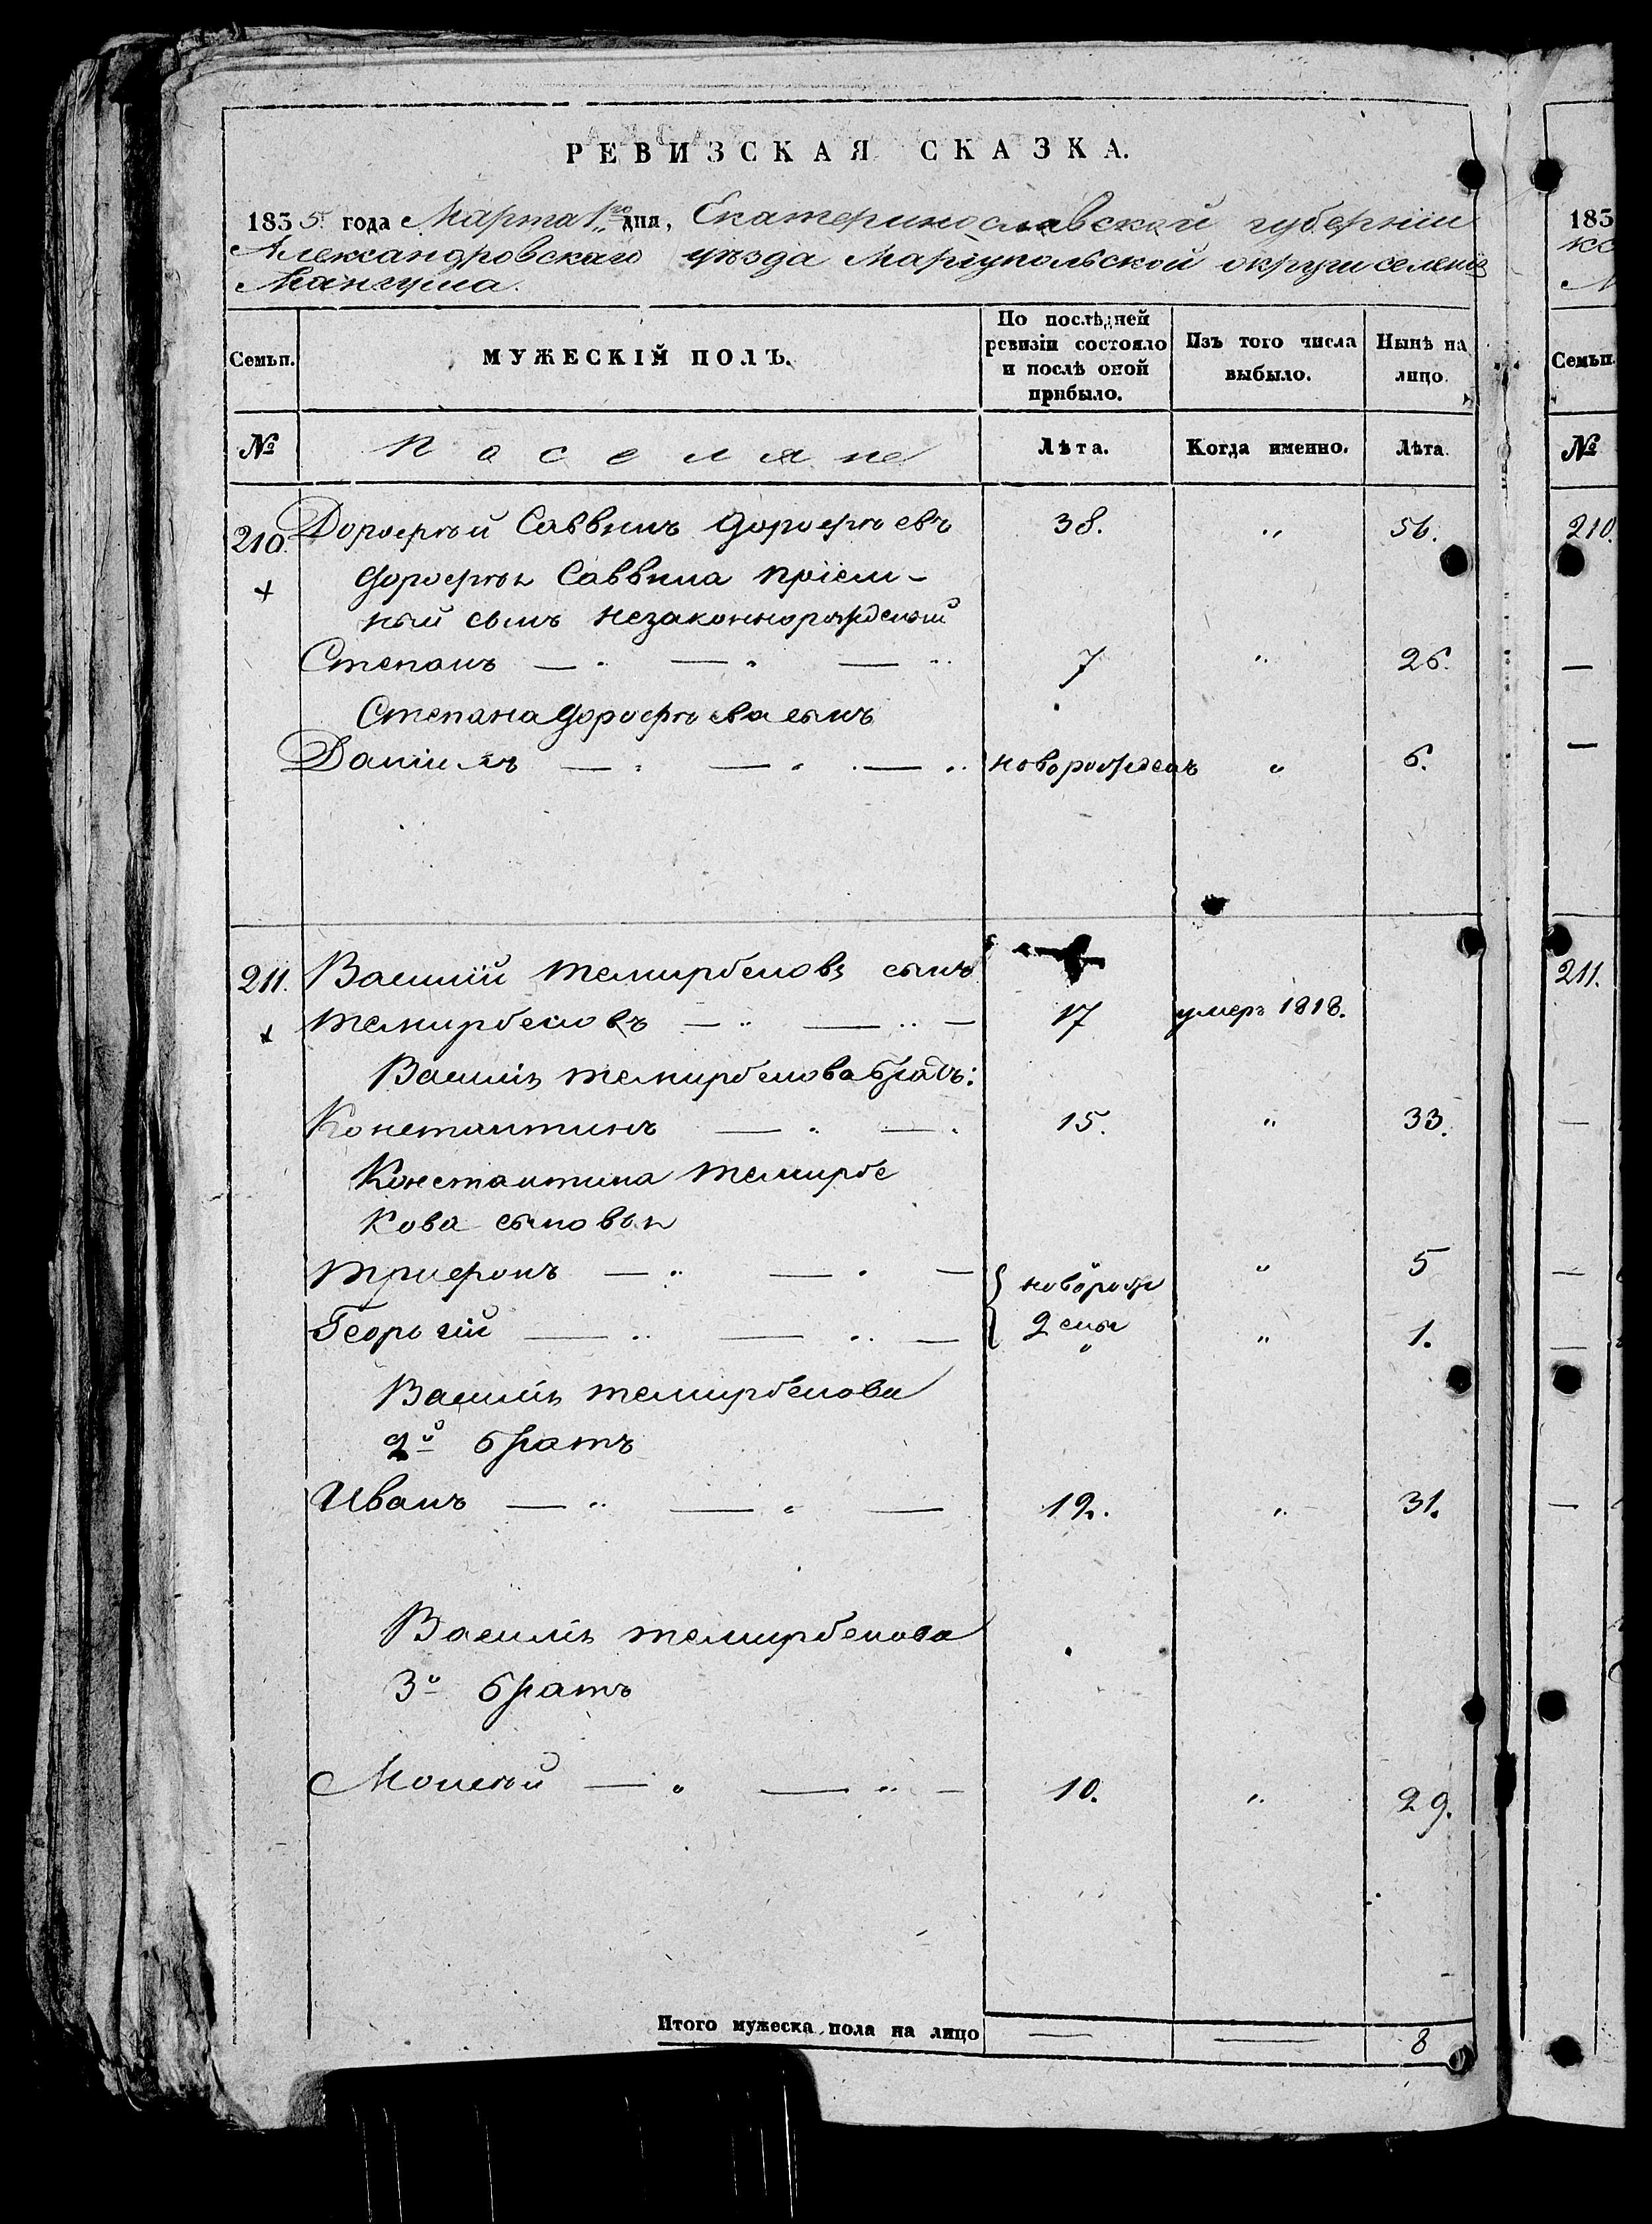 РЕВИЗСКАЯ СКАЗКА.
1835 года Марта 1го дня, Екатеринославской губерніи
Александровскаго уѣзда Маріупольской округи селенія
Мангуша.
Семьи. МУЖЕСКІЙ ПОЛЪ. По послѣдней ревизіи состояло и послѣ оной прибыло. Изъ того числа выбыло. Нынѣ на лицо.
№ Поселяне Лѣта. Когда именно. Лѣта.
210. Дорофѣй Саввинъ Дорофѣевъ 38. " 56.
+ Дорофѣя Саввина пріем-
ный сынъ незаконнорожденый
Степанъ — " — " — " 7 " 26.
Степана Дорофѣева сынъ
Даніилъ — " — " — " новорожденъ " 6.
211. Василій Темирбековъ сынъ
+ Темирбековъ — " — " — 17 умеръ 1818.
Василія Темирбекова братъ:
Константинъ — " — " 15. " 33.
Константина Темирбе
кова сыновья
Трифонъ — " — " — новорож " 5
Георгій — " — " — " 1.
Василія Темирбекова
2й братъ
Иванъ — " — " — 12. " 31.
Василія Темирбекова
3й братъ
Моисѣй — " — " — 10. " 29.
Итого мужеска пола на лицо — — 8
183
№
Семьи.
210.
211.